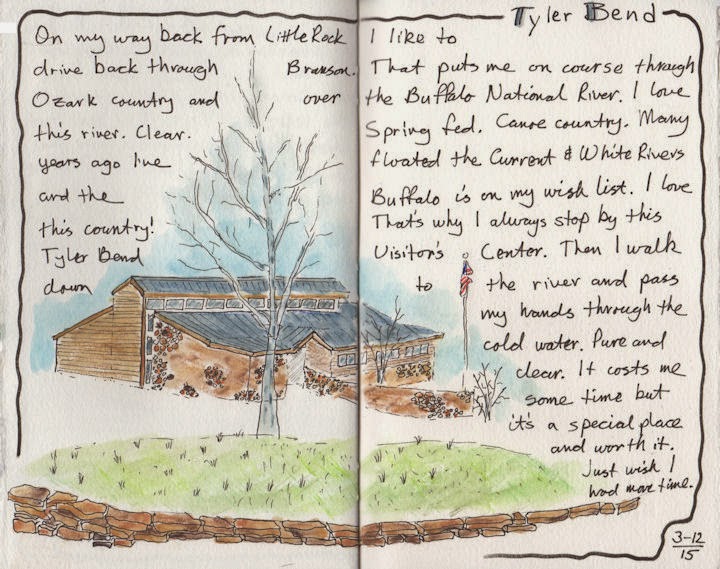 Tyler Bend
On my way back from Little Rock I like to
drive back through Branson. That puts me on course through
Ozark country and over the Buffalo National River. I love
this river. Clear. Spring fed. Canoe country. Many
years ago I've floated the Current & White Rivers
and the Buffalo is on my wish list. I love
this country! That's why I always stop by this
Tyler Bend Visitor's Center. Then I walk
down to the river and pass
my hands through the
cold water. Pure and
clear. It costs me
some time but
it's a special place
and worth it.
Just wish I
had more time.
3-12
15